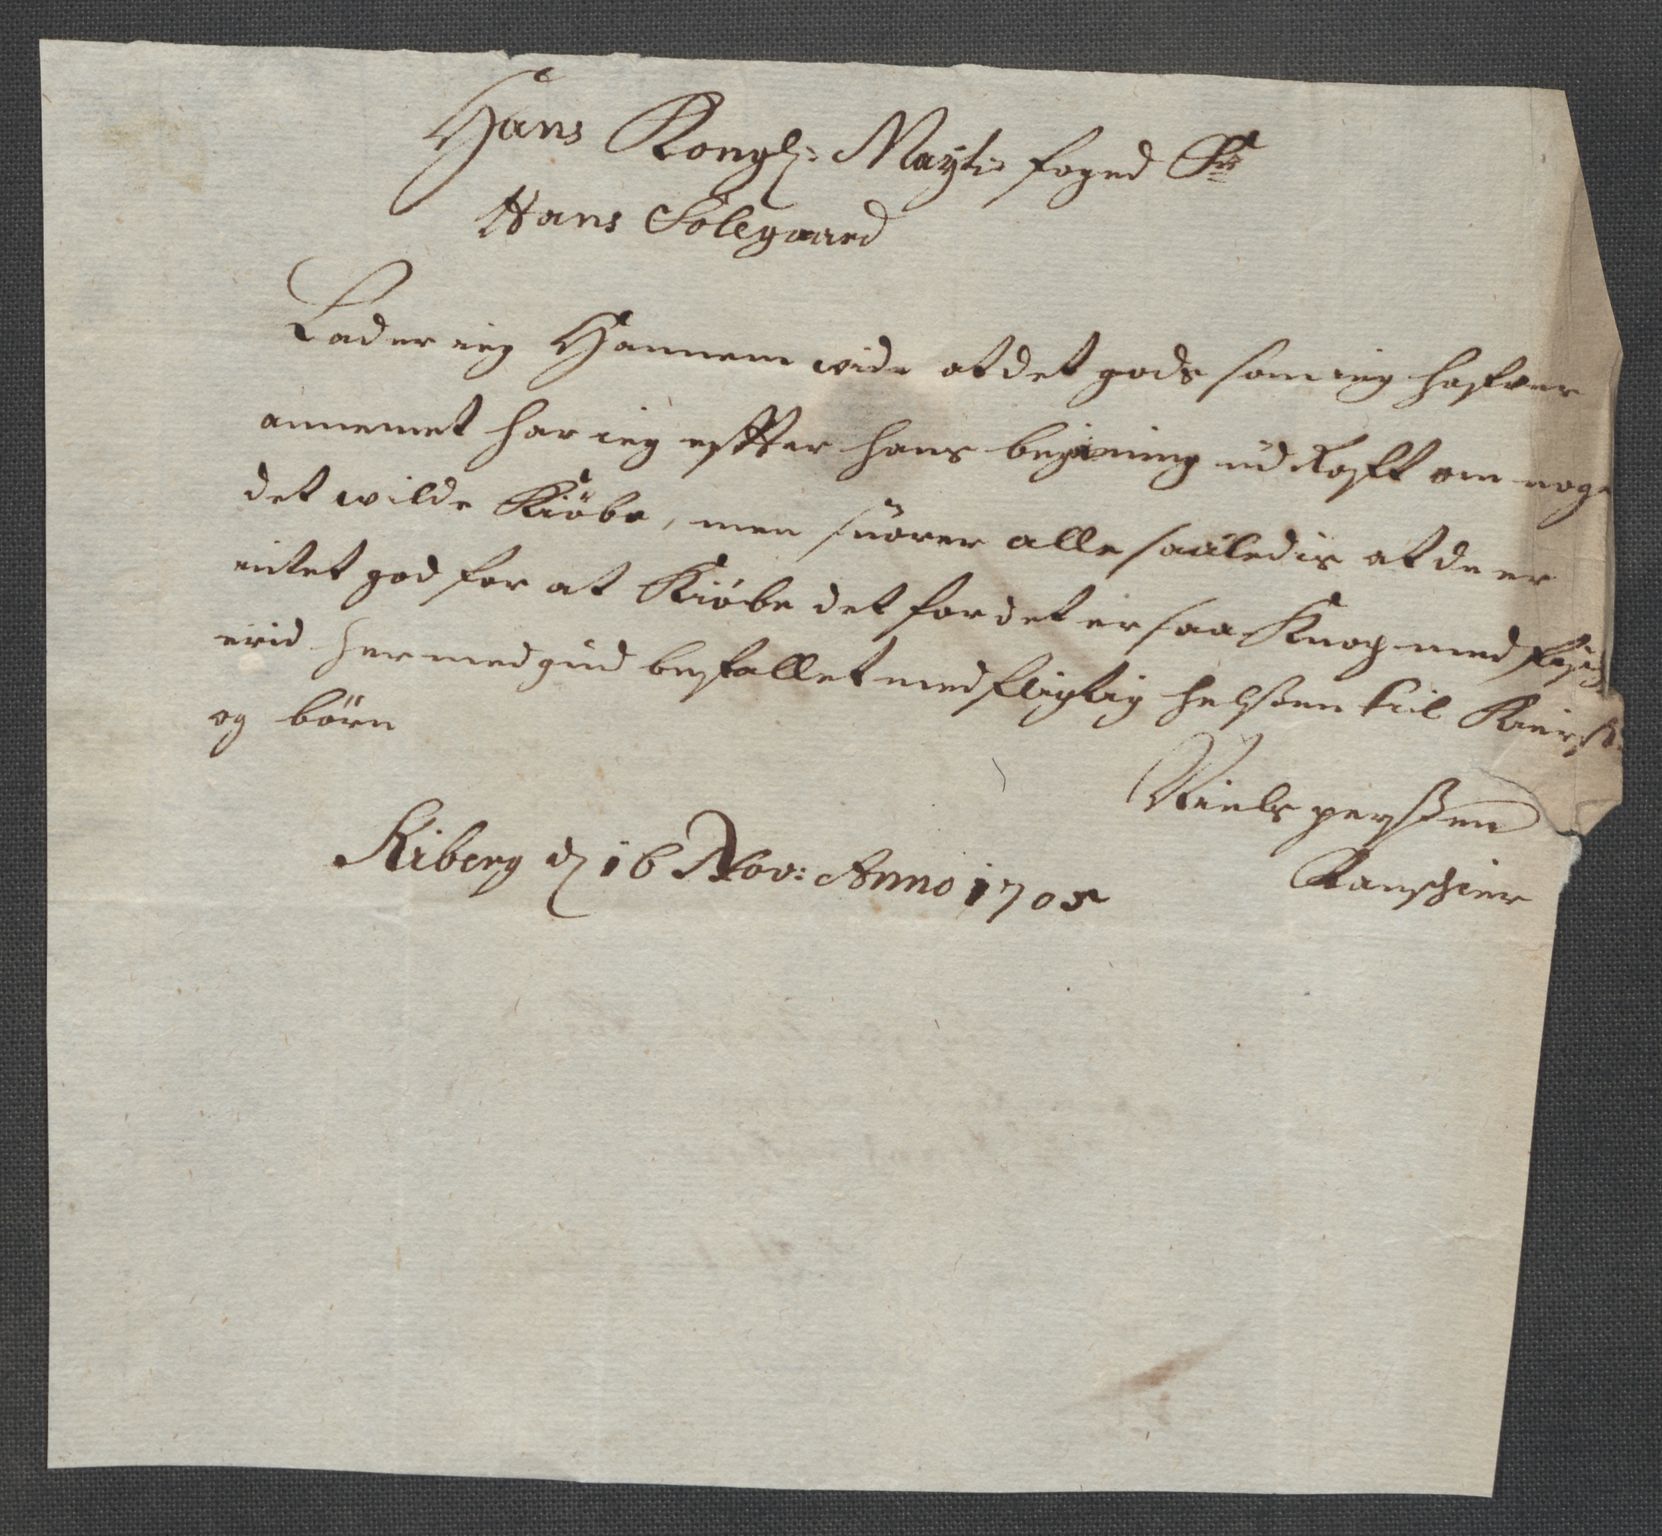 Hans Kongl: Mayts foged Sr
Hans Sølegaard
Lader ieg Hannem vide at det gods som ieg hafver
annemet har ieg effter hans begiering ud Roft om noge
det wilde Kiöbe, men suorer alle saaledis at de er
intet god for at Kiöbe det for det er saa Knap med
erid hermed gud befallet med fligtig helssen til Kierst
og börn
Niels perssen
Kiberg d 16 Nov: Anno 1705